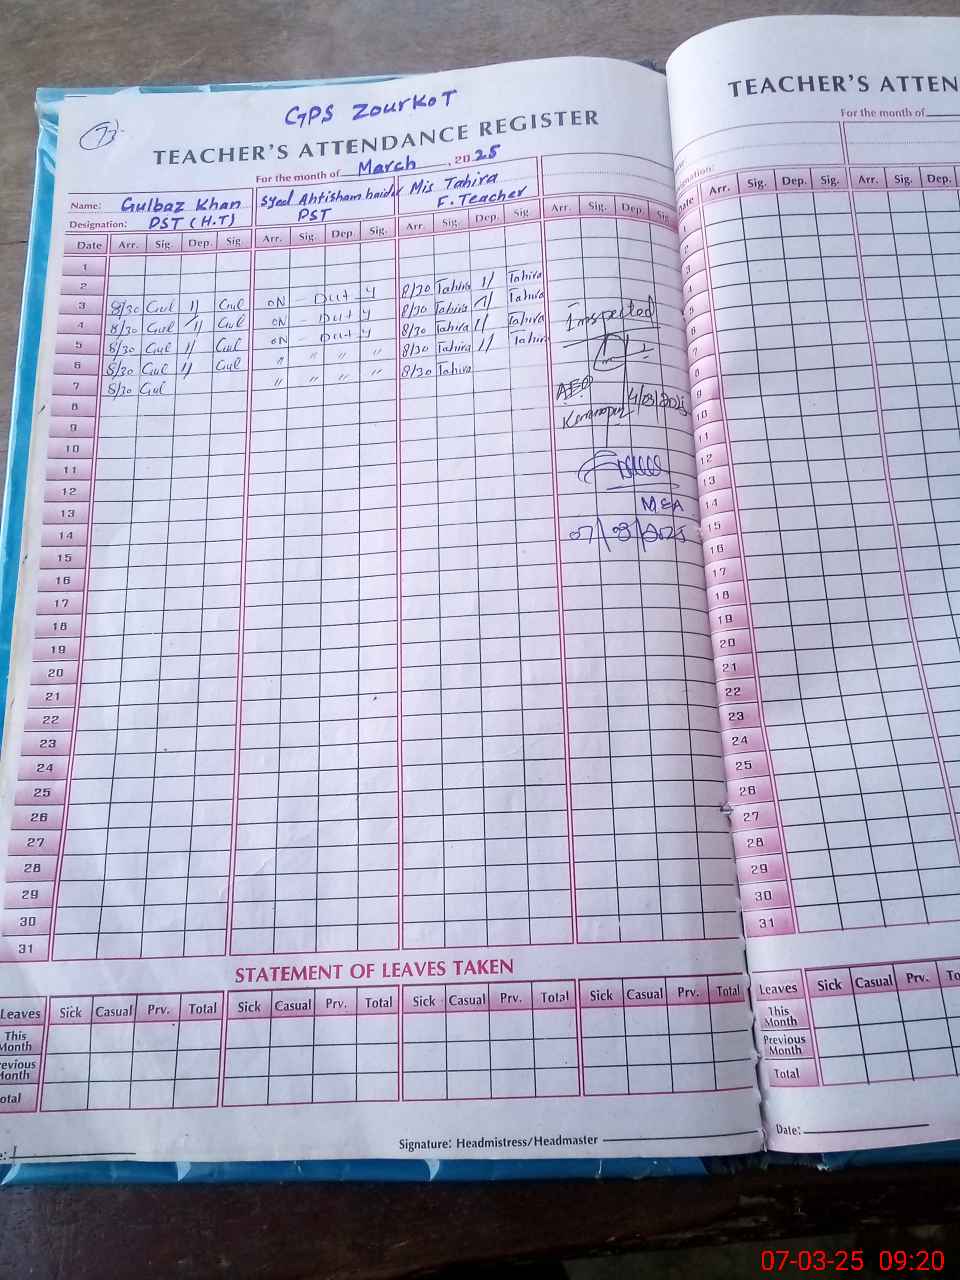 73
GPS ZOURKOT
TEACHER'S ATTENDANCE REGISTER
For the month of March, 2025
Name: Gulbaz Khan Syed Ahtisham haider Mis Tahira
Designation: PST (H.T) PST F. Teacher
Date Arr. Sig. Dep. Sig. Arr. Sig. Dep. Sig. Arr. Sig. Dep. Sig. Arr. Sig. Dep. Sig.
1
2
3 8/30 Gul 11 Gul ON - Duty 8/30 Tahira 11 Tahira
4 8/30 Gul 11 Gul ON - Duty 8/30 Tahira 11 Tahira
5 8/30 Gul 11 Gul ON - Duty 8/30 Tahira 11 Tahira
6 8/30 Gul 11 Gul " " " " 8/30 Tahira 11 Tahira
7 8/30 Gul " " " " 8/30 Tahira
8
9
10
11
12
13
14
15
16
17
18
19
20
21
22
23
24
25
26
27
28
29
30
31
Inspected
AEO 4/03/2025
MEA
07/03/2025
STATEMENT OF LEAVES TAKEN
Leaves Sick Casual Prv. Total Sick Casual Prv. Total Sick Casual Prv. Total Sick Casual Prv. Total
This Month
revious Month
otal
Signature: Headmistress/Headmaster
TEACHER'S ATTEN
For the month of
Date Arr. Sig. Dep. Sig. Arr. Sig. Dep.
1
2
3
4
5
6
7
8
9
10
11
12
13
14
15
16
17
18
19
20
21
22
23
24
25
26
27
28
29
30
31
Leaves Sick Casual Prv. To
This Month
Previous Month
Total
Date:
07-03-25 09:20